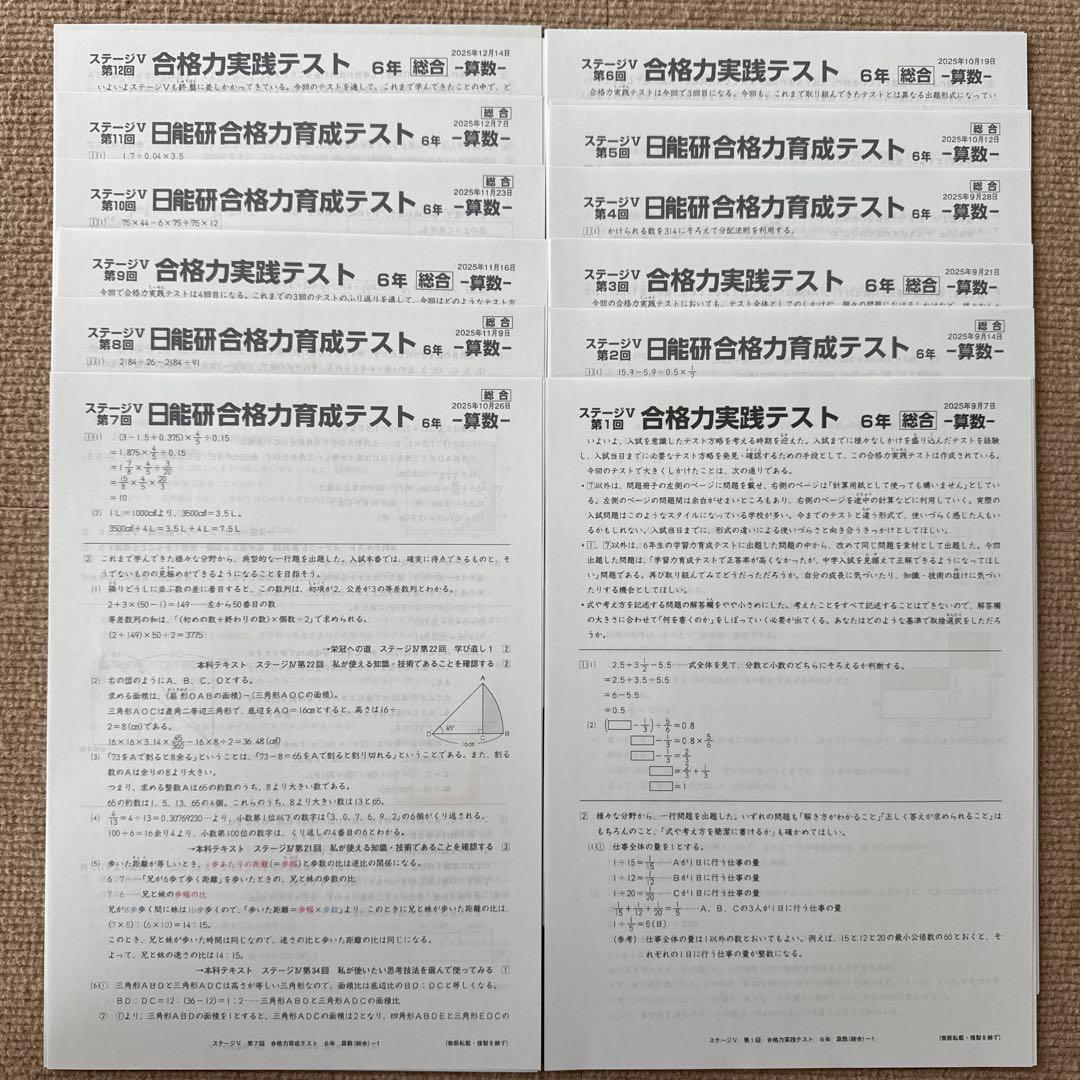 ステージⅤ 第12回 合格力実践テスト 6年 総合 2025年12月14日 -算数-
いよいよステージⅤも終盤に差しかかってきている。今回のテストを通して、これまで学んできたことの中で、ど
ステージⅤ 第11回 日能研合格力育成テスト 6年 総合 2025年12月7日 -算数-
1(1) 1.7÷0.04×3.5
ステージⅤ 第10回 日能研合格力育成テスト 6年 総合 2025年11月23日 -算数-
1(1) 75×44－6×75＋75×12
ステージⅤ 第9回 合格力実践テスト 6年 総合 2025年11月16日 -算数-
今回で合格力実践テストは4回目になる。これまでの3回のテストのふり返りを通して、今回はどのようなテスト方
ステージⅤ 第8回 日能研合格力育成テスト 6年 総合 2025年11月9日 -算数-
1(1) 2184÷26－2184÷91
ステージⅤ 第7回 日能研合格力育成テスト 6年 総合 2025年10月26日 -算数-
1(1) (3－1.5＋0.375)×4/5÷0.15
＝1.875×4/5÷0.15
＝1 7/8×4/5÷3/20
＝15/8×4/5×20/3
＝10
(2) 1L＝1000㎤より、3500㎤＝3.5L。
3500㎤＋4L＝3.5L＋4L＝7.5L
2 これまで学んできた様々な分野から、典型的な一行題を出題した。入試本番では、確実に得点できるものと、そ
うでないものの見極めができるようになることを目指そう。
(1) 隣りどうしに並ぶ数の差に着目すると、この数列は、初項が2、公差が3の等差数列とわかる。
2＋3×(50－1)＝149……左から50番目の数
等差数列の和は、「(初めの数＋終わりの数)×個数÷2」で求められる。
(2＋149)×50÷2＝3775
→栄冠への道 ステージⅣ第22回 学び直し1 2
本科テキスト ステージⅣ第22回 私が使える知識・技術であることを確認する 2
(2) 右の図のようにA、B、C、Oとする。
求める面積は、(扇形OABの面積)－(三角形AOCの面積)。
三角形AOCは直角二等辺三角形で、底辺をAO＝16cmとすると、高さは16÷
2＝8(cm)である。
16×16×3.14×45/360－16×8÷2＝36.48(㎠)
A
O
45°
C
B
16cm
(3) 「73をAで割ると8余る」ということは、「73－8＝65をAで割ると割り切れる」ということである。また、割る
数のAは余りの8より大きい。
つまり、求める整数Aは65の約数のうち、8より大きい数である。
65の約数は1、5、13、65の4個。これらのうち、8より大きい数は13と65。
(4) 4/13＝4÷13＝0.30769230…より、小数第1位以下の数字は「3、0、7、6、9、2」の6個がくり返される。
100÷6＝16余り4より、小数第100位の数字は、くり返しの4番目の6とわかる。
→本科テキスト ステージⅣ第21回 私が使える知識・技術であることを確認する 3
(5) 歩いた距離が等しいとき、1歩あたりの距離(＝歩幅)と歩数の比は逆比の関係になる。
6：7……「兄が6歩で歩く距離」を歩いたときの、兄と妹の歩数の比
7：6……兄と妹の歩幅の比
兄が8歩歩く間に妹は10歩歩くので、「歩いた距離＝歩幅×歩数」より、このときに兄と妹が歩いた距離の比は、
(7×8)：(6×10)＝14：15。
このとき、兄と妹が歩いた時間は同じなので、速さの比と歩いた距離の比は同じになる。
よって、兄と妹の速さの比は14：15。
→本科テキスト ステージⅣ第34回 私が使いたい思考技法を選んで使ってみる 1
(6)① 三角形ABDと三角形ADCは高さが等しい三角形なので、面積比は底辺比のBD：DCと等しくなる。
BD：DC＝12：(36－12)＝1：2……三角形ABDと三角形ADCの面積比
② ①より、三角形ABDの面積を1とすると、三角形ADCの面積は2となり、四角形ABDEと三角形EDCの
ステージⅤ 第7回 合格力育成テスト 6年 算数(総合)－1
(無断転載・複製を禁ず)
ステージⅤ 第6回 合格力実践テスト 6年 総合 2025年10月19日 -算数-
合格力実践テストは今回で3回目になる。今回も、これまで取り組んできたテストとは異なる出題形式になってい
ステージⅤ 第5回 日能研合格力育成テスト 6年 総合 2025年10月12日 -算数-
ステージⅤ 第4回 日能研合格力育成テスト 6年 総合 2025年9月28日 -算数-
1(1) かけられる数を314にそろえて分配法則を利用する。
ステージⅤ 第3回 合格力実践テスト 6年 総合 2025年9月21日 -算数-
今回の合格力実践テストにおいても、テスト全体としてのしかけや、個々の問題におけるしかけなど、様々なしか
ステージⅤ 第2回 日能研合格力育成テスト 6年 総合 2025年9月14日 -算数-
1(1) 15.9－5.9÷0.5×1/2
ステージⅤ 第1回 合格力実践テスト 6年 総合 2025年9月7日 -算数-
いよいよ、入試を意識したテスト方略を考える時期を迎えた。入試までに様々なしかけを盛り込んだテストを経験
し、入試当日までに必要なテスト方略を発見・確認するための手段として、この合格力実践テストは作成されている。
今回のテストで大きくしかけたことは、次の通りである。
・7以外は、問題冊子の左側のページに問題を載せ、右側のページは「計算用紙として使っても構いません」としてい
る。左側のページの問題間は余白がせまいところもあり、右側のページを途中の計算などに利用していく。実際の
入試問題はこのようなスタイルになっている学校が多い。今までのテストと違う形式で、使いづらく感じた人もい
るかもしれない。入試当日までに、形式の違いによる使いづらさと向き合うきっかけとしてほしい。
・1、7以外は、6年生の学習力育成テストに出題した問題の中から、改めて同じ問題を素材として出題した。今回
出題した問題は、「学習力育成テストで正答率が高くなかったが、中学入試を見据えて正解できるようになってほし
い」問題である。再び取り組んでみてどうだっただろうか。自分の成長に気づいたり、知識・技術の抜けに気づい
たりする機会としてほしい。
・式や考え方を記述する問題の解答欄をやや小さめにした。考えたことをすべて記述することはできないので、解答欄
の大きさに合わせて「何を書くのか」をしぼっていく必要が出てくる。あなたはどのような基準で取捨選択をしただろ
うか。
1(1) 2.5＋3 1/2－5.5……式全体を見て、分数と小数のどちらにそろえるか判断する。
＝2.5＋3.5－5.5
＝6－5.5
＝0.5
(2) (□－1/3)÷5/6＝0.8
□－1/3＝0.8×5/6
□－1/3＝2/3
□＝2/3＋1/3
□＝1
2 様々な分野から、一行問題を出題した。いずれの問題も「解き方がわかること」「正しく答えが求められること」は
もちろんのこと、「式や考え方を簡潔に書けるか」も確かめてほしい。
(1)① 仕事全体の量を1とする。
1÷15＝1/15……Aが1日に行う仕事の量
1÷12＝1/12……Bが1日に行う仕事の量
1÷20＝1/20……Cが1日に行う仕事の量
1/15＋1/12＋1/20＝1/5……A、B、Cの3人が1日に行う仕事の量
1÷1/5＝5(日)
(参考) 仕事全体の量は1以外の数とおいてもよい。例えば、15と12と20の最小公倍数の60とおくと、そ
れぞれの1日に行う仕事の量が整数になる。
ステージⅤ 第1回 合格力実践テスト 6年 算数(総合)－1
(無断転載・複製を禁ず)